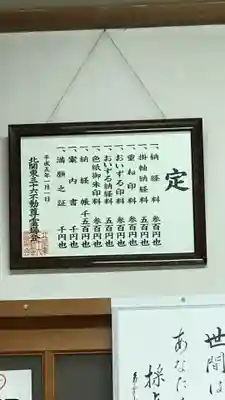 定
一、納経料 参百円也
一、掛軸納経料 五百円也
一、重ね印料 参百円也
一、おいずる印料 参百円也
一、おいずる納経料 五百円也
一、色紙御朱印料 参百円也
一、納経帳 千五百円也
一、案内書 千円也
一、満願之証 千円也
平成五年一月一日
北関東三十六不動尊霊場会
世間は
あなたに
採点